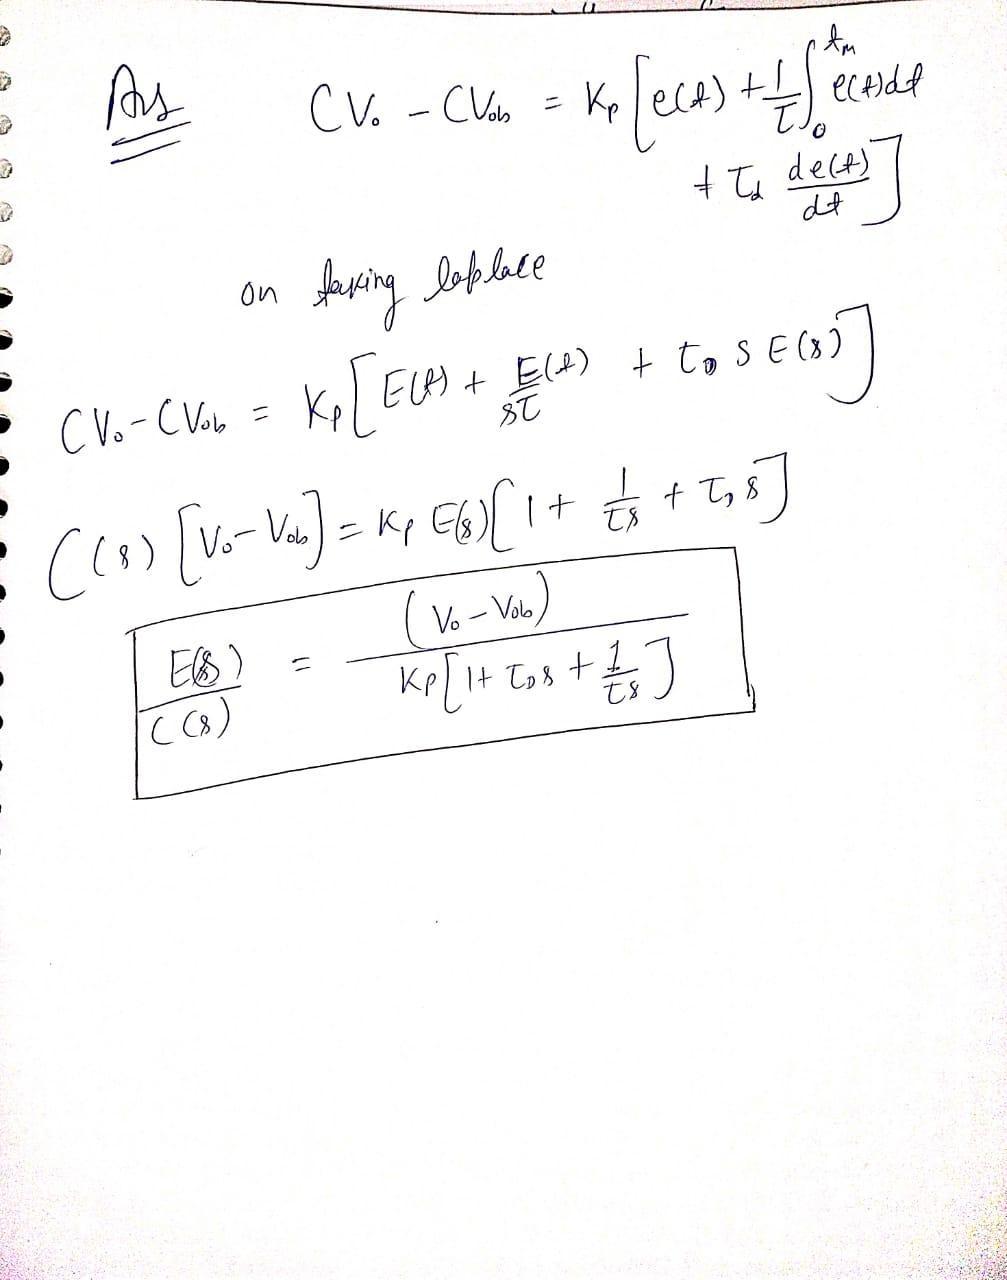 Ans CV₀ - CV₀b = Kp [e(t) + 1/τ ∫₀^tm e(t)dt
+ τd de(t)/dt]
on taking laplace
CV₀ - CV₀b = Kp [E(t) + E(t)/sτ + τD S E(s)]
C(s) [V₀ - V₀b] = Kp E(s) [1 + 1/τs + τD s]
E(s)/C(s) = (V₀ - V₀b) / Kp [1 + τD s + 1/τs]